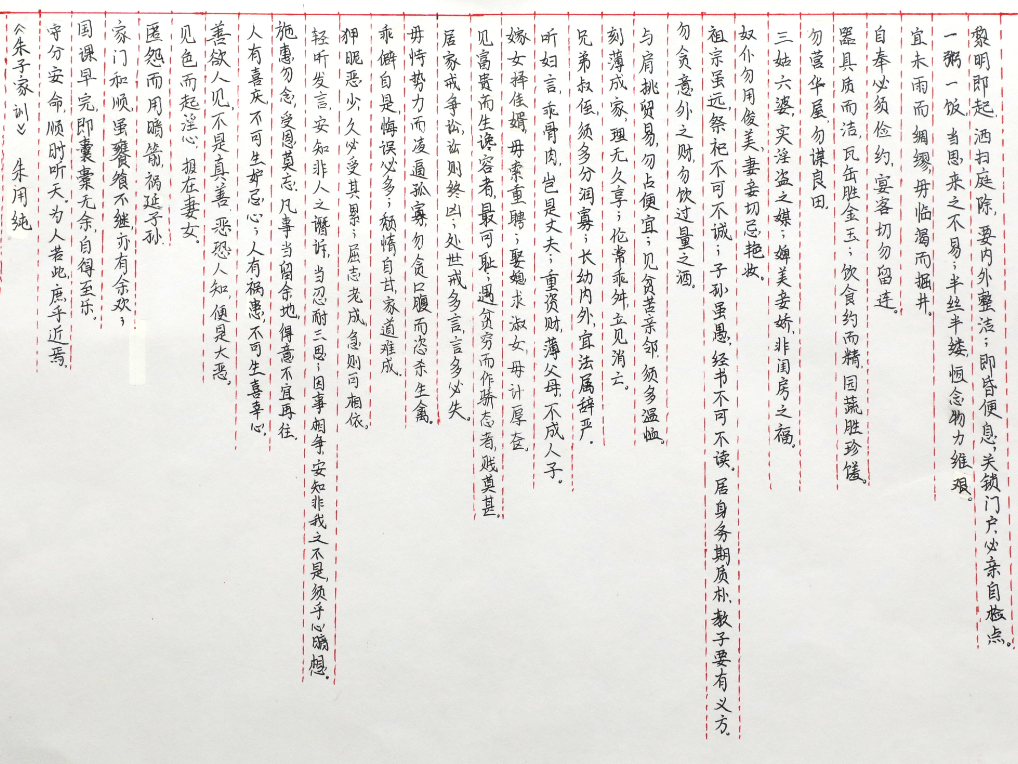 黎明即起，洒扫庭除，要内外整洁；即昏便息，关锁门户，必亲自检点。
一粥一饭，当思来之不易；半丝半缕，恒念物力维艰。
宜未雨而绸缪，毋临渴而掘井。
自奉必须俭约，宴客切勿留连。
器具质而洁，瓦缶胜金玉；饮食约而精，园蔬胜珍馐。
勿营华屋，勿谋良田。
三姑六婆，实淫盗之媒；婢美妾娇，非闺房之福。
奴仆勿用俊美，妻妾切忌艳妆。
祖宗虽远，祭祀不可不诚；子孙虽愚，经书不可不读。居身务期质朴，教子要有义方。
勿贪意外之财，勿饮过量之酒。
与肩挑贸易，勿占便宜；见贫苦亲邻，须多温恤。
刻薄成家，理无久享；伦常乖舛，立见消亡。
兄弟叔侄，须多分润寡；长幼内外，宜法属辞严。
听妇言，乖骨肉，岂是丈夫；重资财，薄父母，不成人子。
嫁女择佳婿，毋索重聘；娶媳求淑女，毋计厚奁。
见富贵而生谗容者，最可耻；遇贫穷而作骄态者，贱莫甚。
居家戒争讼，讼则终凶；处世戒多言，言多必失。
毋恃势力而凌逼孤寡，勿贪口腹而恣杀生禽。
乖僻自是，悔误必多；颓惰自甘，家道难成。
狎昵恶少，久必受其累；屈志老成，急则可相依。
轻听发言，安知非人之谮诉，当忍耐三思；因事相争，安知非我之不是，须平心暗想。
施惠勿念，受恩莫忘。凡事当留余地，得意不宜再往。
人有喜庆，不可生妒忌心；人有祸患，不可生喜幸心。
善欲人见，不是真善，恶恐人知，便是大恶。
见色而起淫心，报在妻女。
匿怨而用暗箭，祸延子孙
家门和顺，虽饔飧不继，亦有余欢；
国课早完，即囊橐无余，自得至乐。
守分安命，顺时听天。为人若此，庶乎近焉。
《朱子家训》 朱用纯